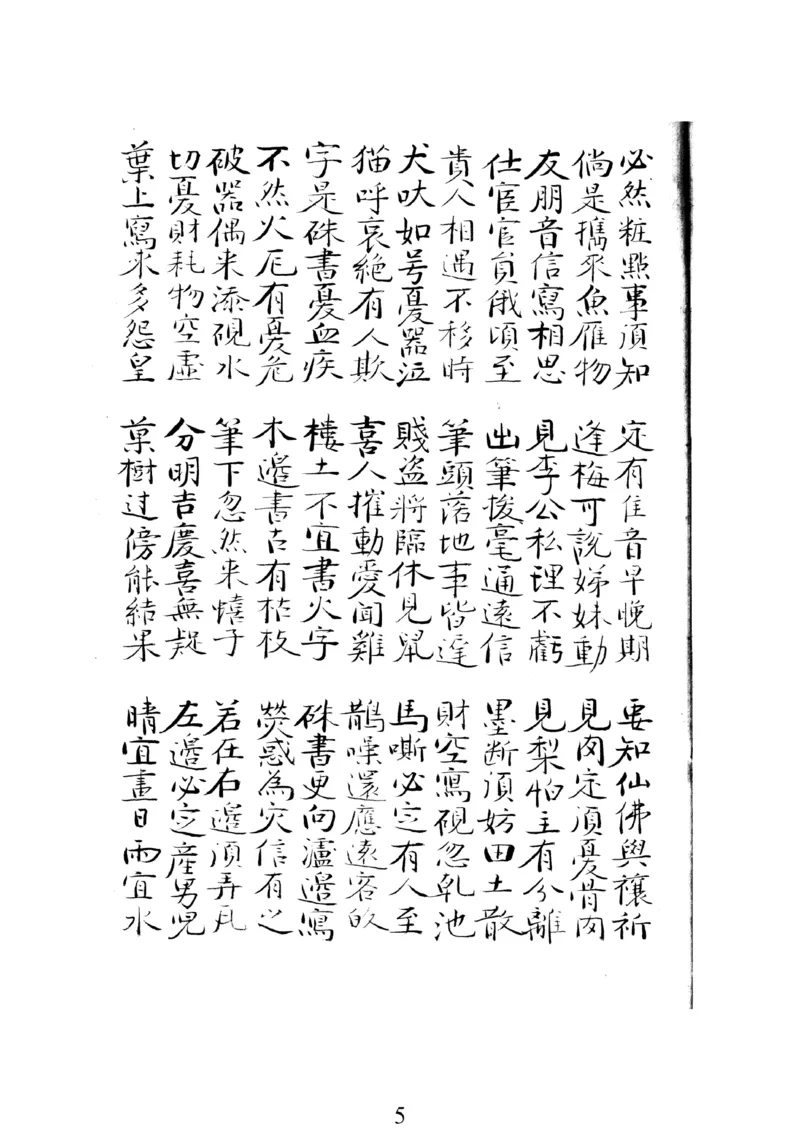 必然粧點事須知 定有佳音早晚期 要知仙佛與禳祈
倘是擕來魚雁物 逢梅可說娣妹動 見肉定須憂骨肉
友朋音信寫相思 見李公私理不虧 見梨怕主有分離
仕宦官員俄頃至 出筆拔毫通遠信 墨断須妨田土散
貴人相遇不移時 筆頭落地事皆遲 財空寫硯忽乹池
犬吠如号憂器泣 賤盗將臨休見鼠 馬嘶必定有人至
猫呼哀絶有人欺 喜人摧動愛聞雞 鵲噪還應遠客的
字是硃書憂血疾 樓土不宜書火字 硃書更向瀘邉寫
不然火厄有憂危 木邉書古有枯枝 熒惑為灾信有之
破器偶来添硯水 筆下忽然来蟢子 若在右邉須弄瓦
切憂財耗物空虛 分明吉慶喜無疑 左邉必定産男兒
葉上寫来多怨皇 菓樹过傍能結果 晴宜畫日雨宜水